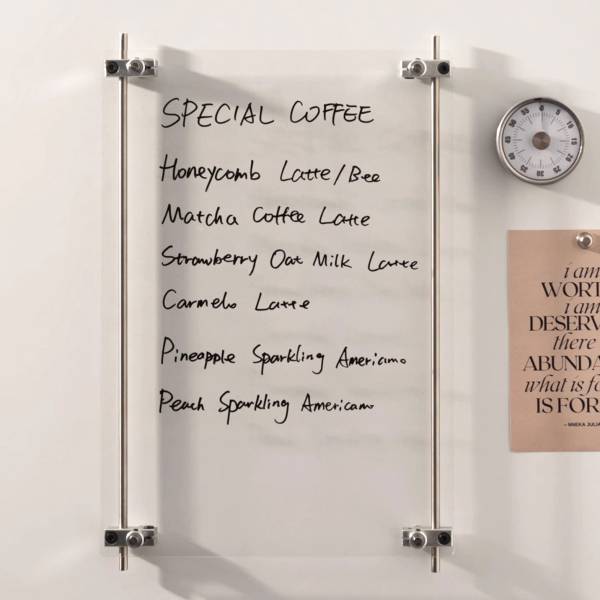 SPECIAL COFFEE
Honeycomb Latte/Bee
Matcha Coffee Latte
Strawberry Oat Milk Latte
Carmelo Latte
Pineapple Sparkling Americano
Peach Sparkling Americano
i am
WORT
i am
DESERV
there
ABUNDA
what is fo
IS FOR